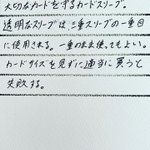 大切なカードを守るカードスリーブ。
透明なスリーブは、三重スリーブの一番目
に使用される。一重のまま使ってもよい。
カードサイズを見ずに適当に買うと
失敗する。